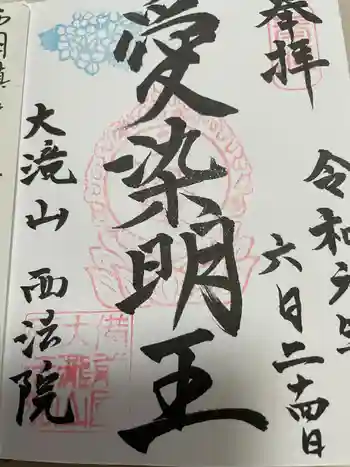 奉拝
令和元年
六月二十四日
愛染明王
大滝山 西法院
大瀧山